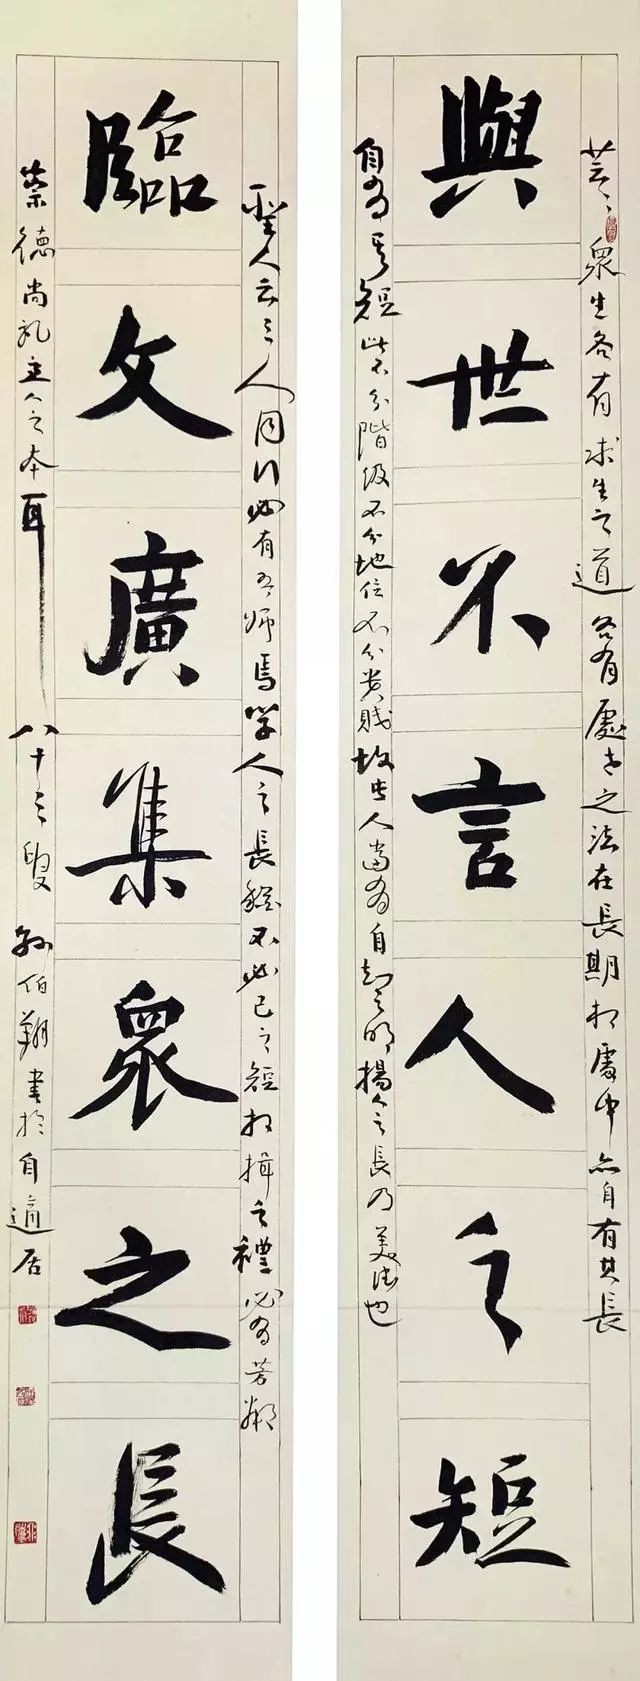 芸々衆生各有求生之道各有處世之法在長期相處中亦自有其長
與世不言人之短
自為其短此不分階級不分地位不分貴賤故吾人當為自知之明揚人之長乃美德也
聖人云三人同行必有吾師焉學人之長不必己之短相揖之禮必為芳鄰
臨文廣集衆之長
崇德尚礼立人之本耳八十三叟孫伯翔書於自適居